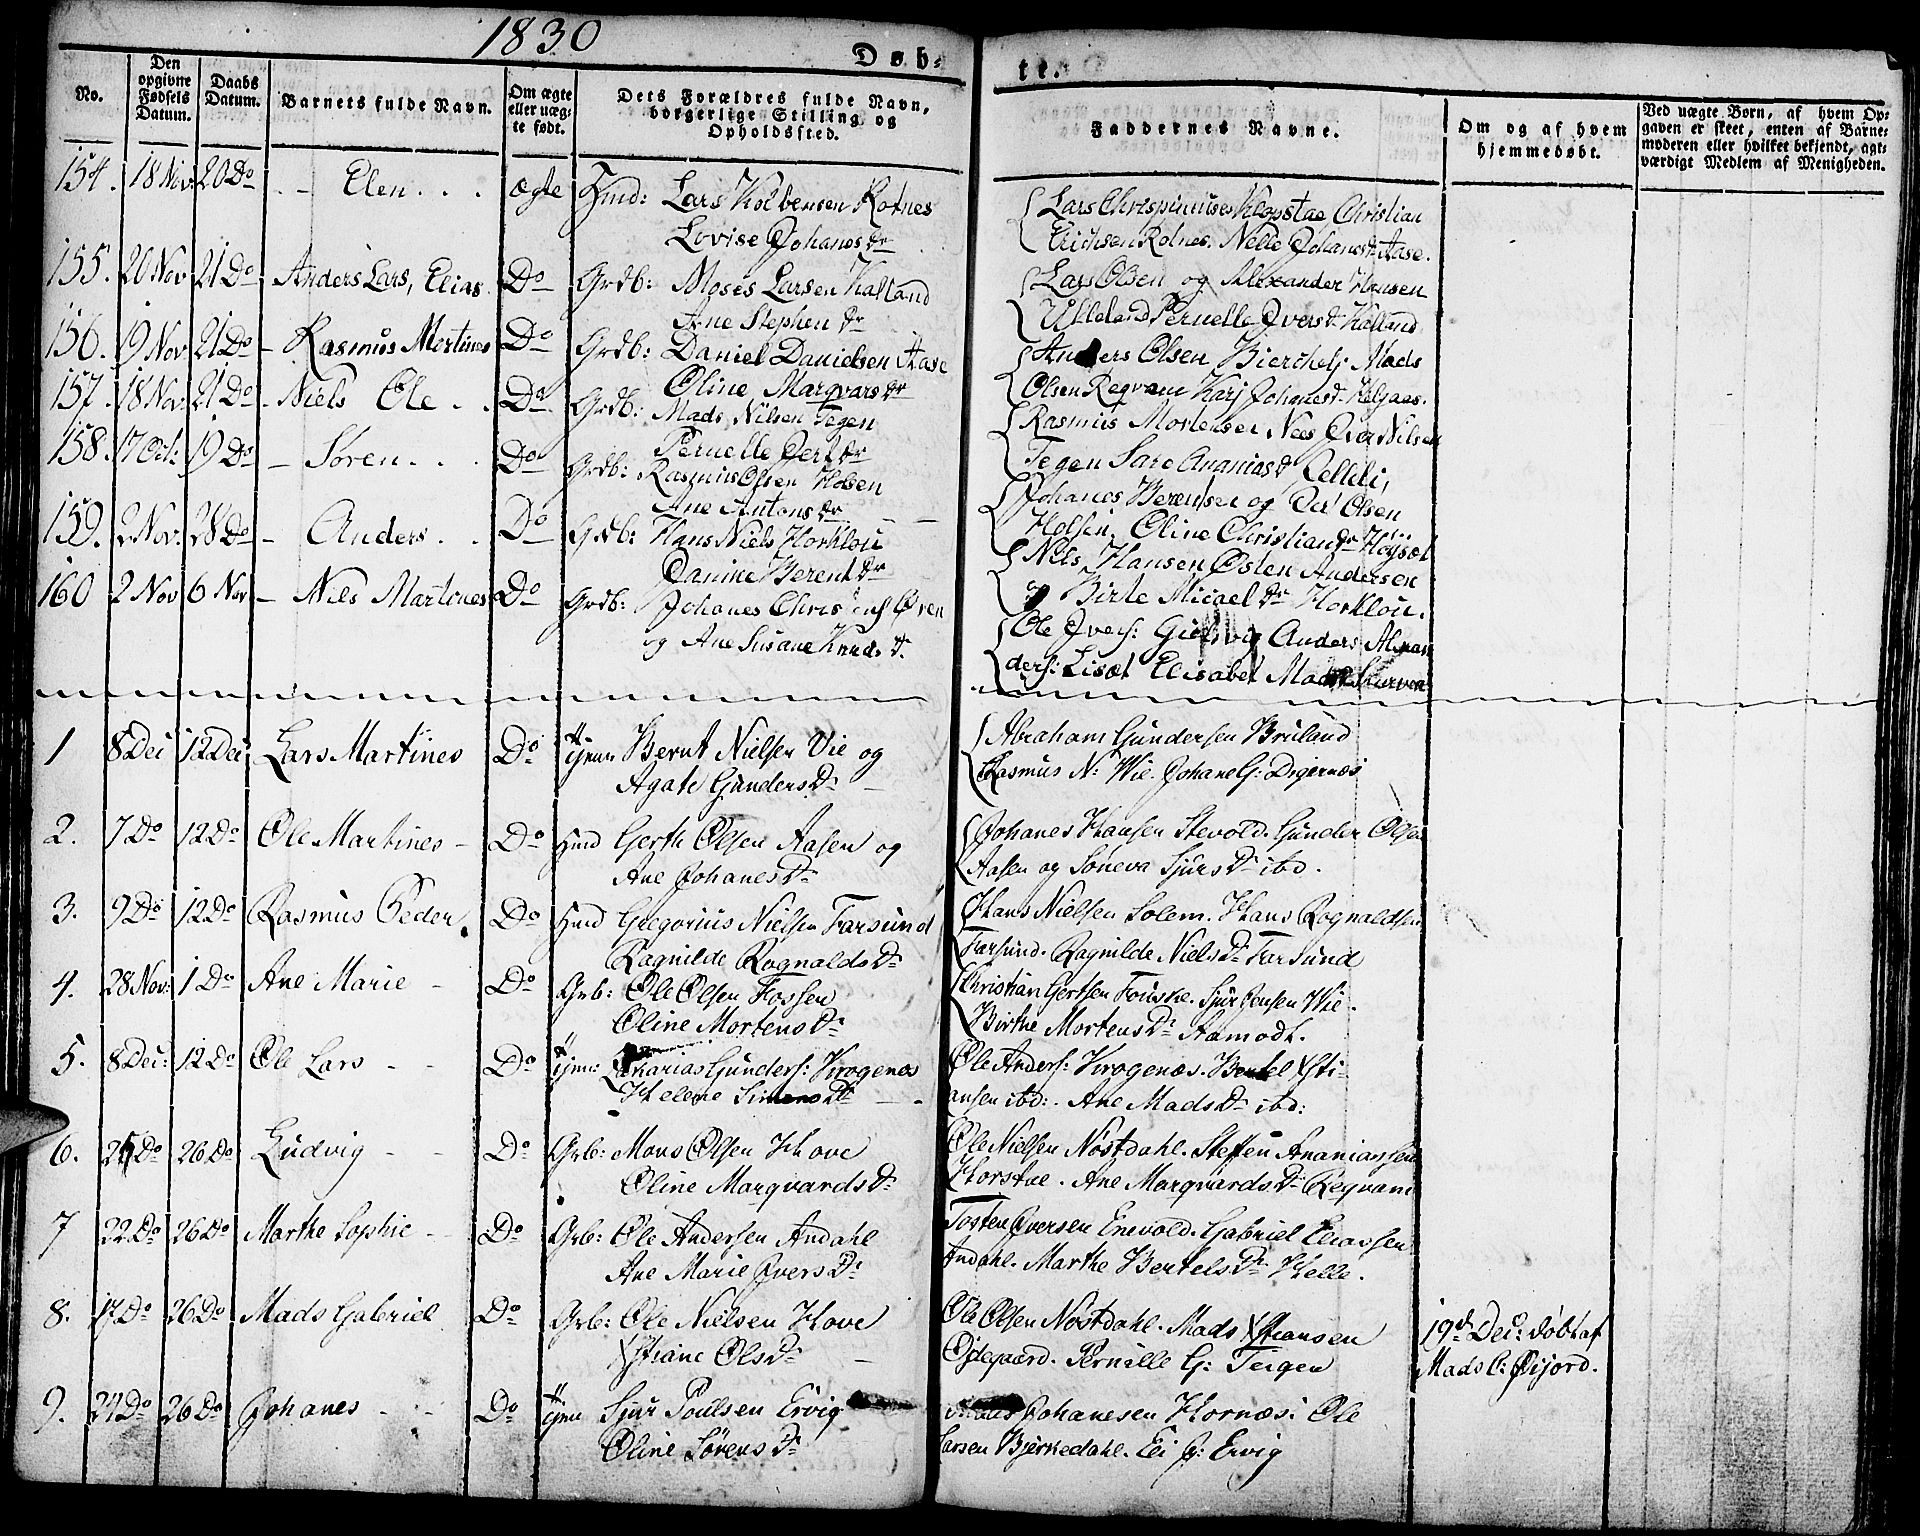 1830
Døb-
te.
No.
Den opgivne Fødsels Datum.
Daabs Datum.
Barnets fulde Navn.
Om ægte eller uægte født.
Dets Forældres fulde Navn, borgerlige Stilling og Opholdssted.
Faddernes Navne.
Om og af hvem hjemmedøbt.
Ved uægte Børn, af hvem Opgaven er skeet, enten af Barnemoderen eller hvilket bekjendt, agtværdigt Medlem af Menigheden.
154. 18 Nov 20 Do - - Elen . . . ægte Hmd: Lars Kolbensen Rotnes
Lovise Johanes Dr
Lars Chrispinusen Klopstae Christian
Erichsen Rotnes. Nelle Johanes Dr Aase.
155. 20 Nov 21 Do - Anders Lars, Elias Do Grdb: Moses Larsen Kalland
Ane Stephen Dr
Lars Olsen og Alexander Hansen
Ukleland Pernelle Ivers Dr Kalland
156. 19 Nov 21 Do - Rasmus Mortines Do Grdb: Daniel Danielsen Aase
Oline Marqvars Dr
Anders Olsen Mads
Olsen Reqvam Karj Johanes Dr
157. 18 Nov 21 Do - Niels Ole . . Do Grdb: Mads Nilsen Tegen
Pernelle Dr
Rasmus Mortensen Nees Iver Nilsen
Tegen Sare Ananias Dr
158. 17 Oct: 19 Do - Søren . . . Do Grdb: Rasmus Olsen Holsen
Ane Antons Dr
Johanes Berentsen og Olsen
Holsen, Oline Christian Dr Høyset
159. 2 Nov. 28 Do - Anders . . Do Grdb: Hans Niels Horklou
Danine Berent Dr
Nils Hansen Østen Andersen
og Birte Micael Dr Horklou.
160 2 Nov 6 Nov - Niels Martines Do Grdb: Johanes Øren
og Ane Susane Knuds D.
Ole Ivers: Anders Alexan
ders: Lisæt Elisabet Mads
1 8 Dec 12 Dec Lars Martines Do Tjener Bernt Nielsen Vie og
Agate Gunders Dr -
Abraham Gundersen Bruland
Rasmus N: Wie. Johane G: Digernæs
2. 7 Do 12 Do Ole Martines - Do Hmd Gerth Olsen Aasen og
Ane Johanes Dr
Johanes Hansen Stevold. Gunder Olsen
Aasen og Søneva Sjurs Dr ibd.
3. 9 Do 12 Do Rasmus Peder. Do Hmd Gregorius Nielsen Farsund
Ragnilde Rognalds Dr
Hans Nielsen Solem. Hans Rognaldsen
Farsund. Ragnilde Niels Dr Farsund
4. 28 Nov: 1 Do Ane Marie - Do Grb: Ole Olsen Fossen
Oline Mortens Dr
Christian Gertsen Fouske. Sjur Jensen Wie.
Birthe Mortens Dr Hamodt.
5. 8 Dec: 12 Do Ole Lars - - Do Tjener: Zakarias Gunders: Krogenæs
Helene Simens Dr
Ole Anders: Krogenæs. Bertel Xsti-
ansen ibd: . Ane Mads Dr ibd:
6. 25 Do 26 Do Ludvig - - Do Grb: Mons Olsen Hove
Oline Marqvards Dr
Ole Nielsen Nøstdahl. Steffen Ananiassen
Horstae. Ane Marqvards Dr Reqvam
7 22 Do 26 Do Marthe Sophie - - Do Grb: Ole Andersen Andahl
Ane Marie Ivers Dr
Tosten Iversen Enevold. Gabriel Eliassen
Andahl. Marthe Bertels Dr Helle.
8. 17 Do 26 Do Mads Gabriel Do Grb: Ole Nielsen Hove
Xstiane Ols Dr -
Ole Olsen Nøstdahl. Mads Xstiansen
Ødegaard. Pernille G: Teigen
19de Dec: døbt af
Mads C: Øijord.
9. 24 Do 26 Do Johanes - - Do Tjener Sjur Poulsen Ervig
Oline Sørens Dr
Johanesen Hornæs: Ole
Larsen Bjerkedahl. Eli J: Ervig